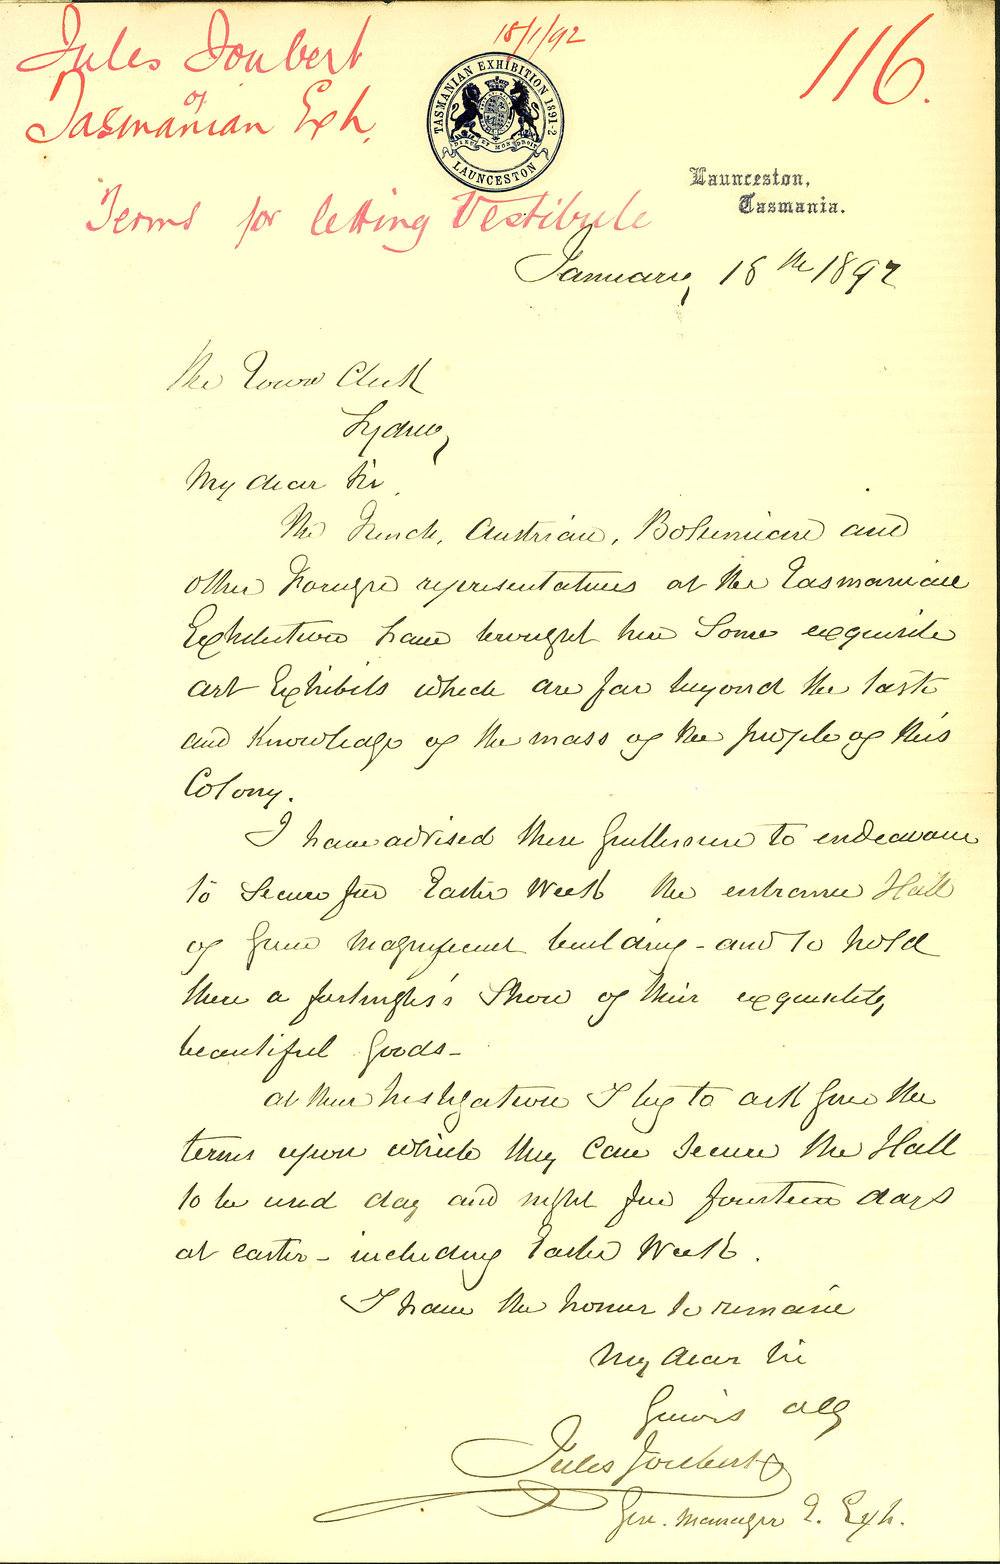 18/1/92
Jules Joubert
of
Tasmanian Exh.
116.
TASMANIAN EXHIBITION 1891-2
DIEU ET MON DROIT
LAUNCESTON
Launceston,
Tasmania.
Terms for letting Vestibule
January 18th 1892
The Town Clerk
Sydney
My dear Sir
The French, Austrian, Bohemian and
other Foreign representatives at the Tasmanian
Exhibition have brought here some exquisite
art Exhibits which are far beyond the taste
and Knowledge of the mass of the people of this
Colony.
I have advised these Gentlemen to endeavour
to secure for Easter Week the entrance Hall
of your magnificent building - and to hold
there a fortnight's Show of their exquisitely
beautiful Goods -
at their instigation I beg to ask your the
terms upon which they can secure the Hall
to be used day and night for fourteen days
at easter - including Easter Week.
I have the honor to remain
My dear Sir
Yours
Jules Joubert
Gen. Manager T. Exh.